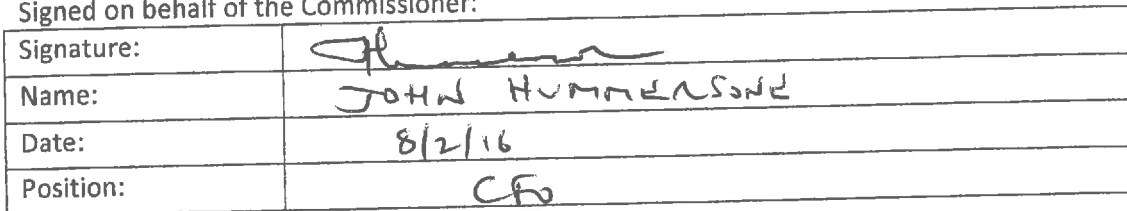 Signed on behalf of the Commissioner:
Signature:
Name: JOHN HUMMERSONE
Date: 8/2/16
Position: CFO